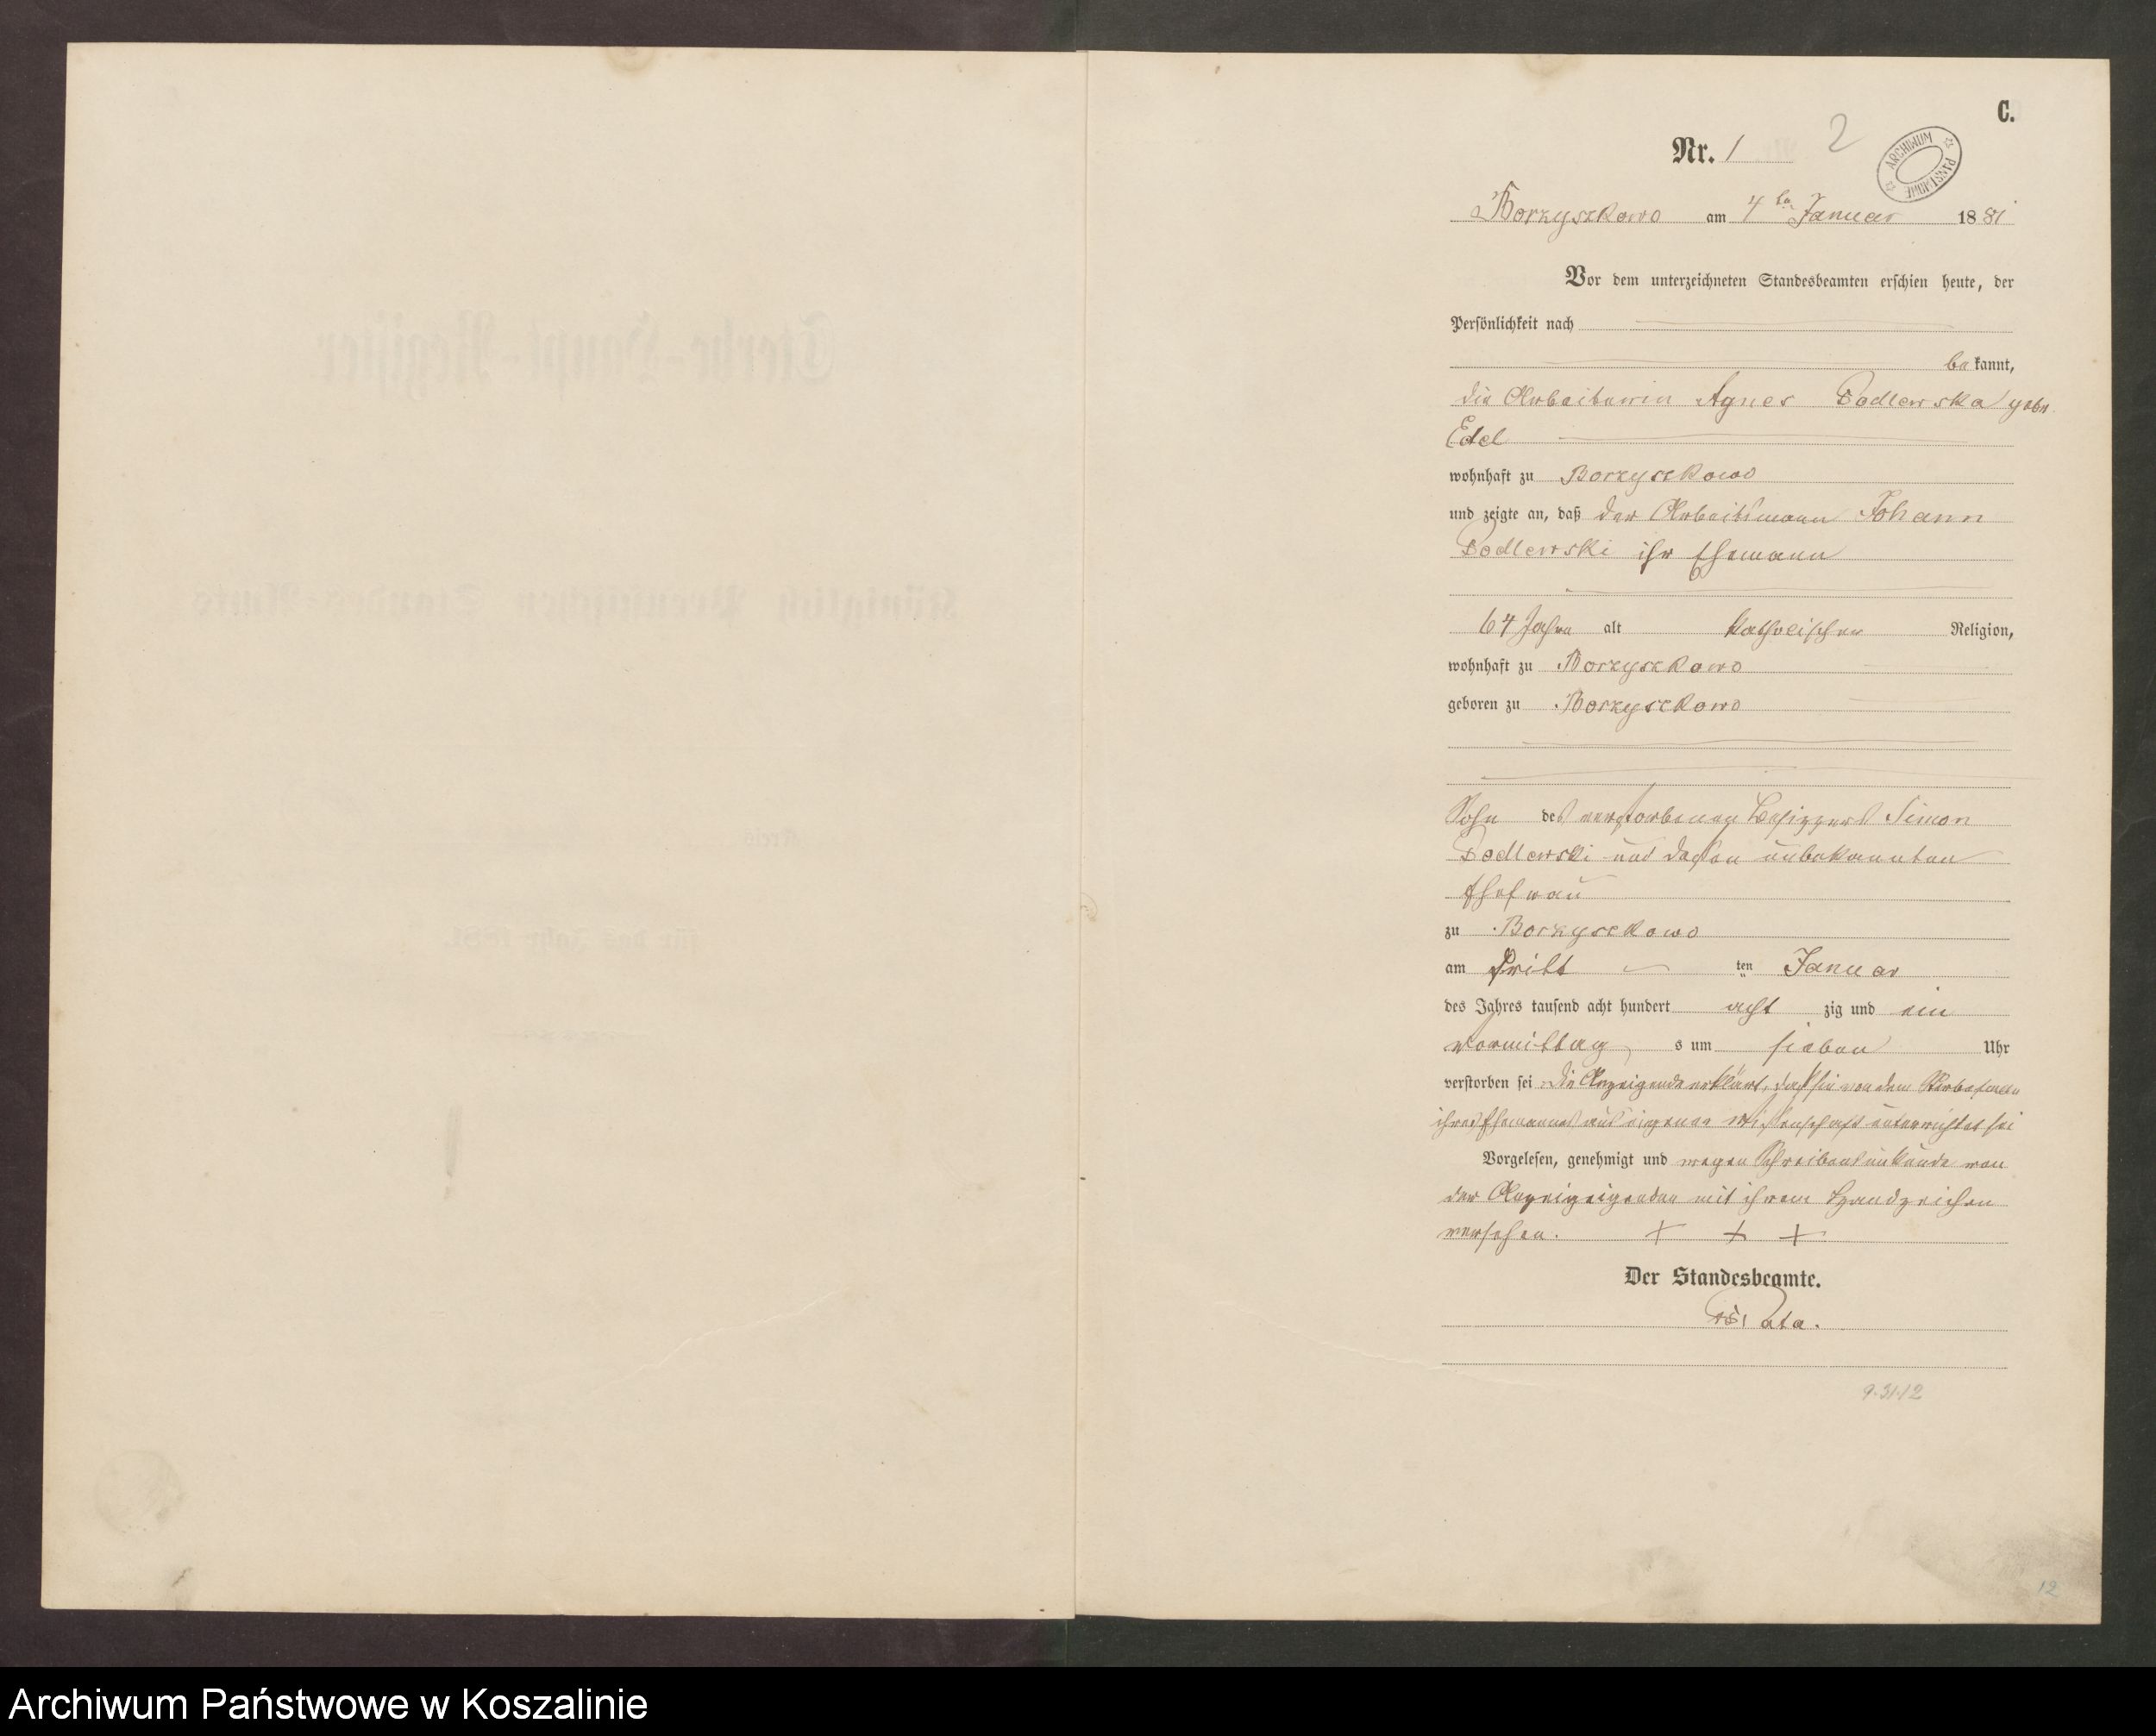 C.
Nr. 1
2
ARCHIWUM PAŃSTWOWE
Borzyszkowo am 4ten Januar 1881
Vor dem unterzeichneten Standesbeamten erschien heute, der
Persönlichkeit nach
bekannt,
die Arbeiterin Agnes Podlewska geb.
Edel
wohnhaft zu Borzyszkowo
und zeigte an, daß der Arbeitsmann Johann
Podlewski ihr Ehemann
64 Jahre alt katholischer Religion,
wohnhaft zu Borzyszkowo
geboren zu Borzyszkowo
Sohn des verstorbenen Besitzers Simon
Podlewski und dessen unbekannten
Ehefrau
zu Borzyszkowo
am Dritt ten Januar
des Jahres tausend acht hundert acht zig und ein
Vormittag s um sieben Uhr
verstorben sei. Die Anzeigende erklärt, daß sie von dem Sterbefalle
ihres Ehemannes aus eigener Wissenschaft unterrichtet sei
Vorgelesen, genehmigt und wegen Schreibensunkunde von
der Anzeigeigenden mit ihrem Handzeichen
versehen. + + +
Der Standesbeamte.
9.31.12
12
Sterbe-Haupt-Register
Königlich Preußischen Standes-Amts
Kreis
für das Jahr 1881.
Archiwum Państwowe w Koszalinie